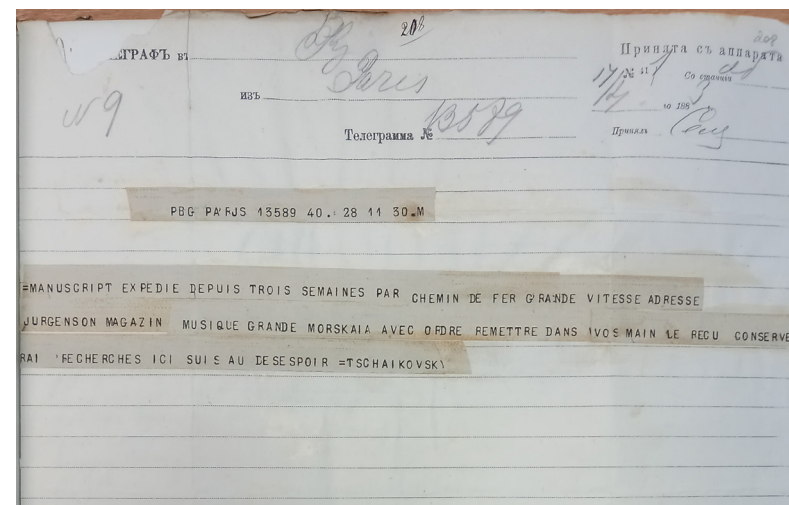 208
208
ЕГРАФЪ въ
Принята съ аппарата
17 № 41
Со станціи
изъ Paris
188
Телеграмма № 13589
Принялъ
N 9
PBG PARJS 13589 40. 28 11 30.M
=MANUSCRIPT EXPEDIE DEPUIS TROIS SEMAINES PAR CHEMIN DE FER GRANDE VITESSE ADRESSE
JURGENSON MAGAZIN MUSIQUE GRANDE MORSKAIA AVEC OFDRE REMETTRE DANS VOS MAIN LE RECU CONSERVE
RAI RECHERCHES ICI SUIS AU DESESPOIR =TSCHAIKOVSKY